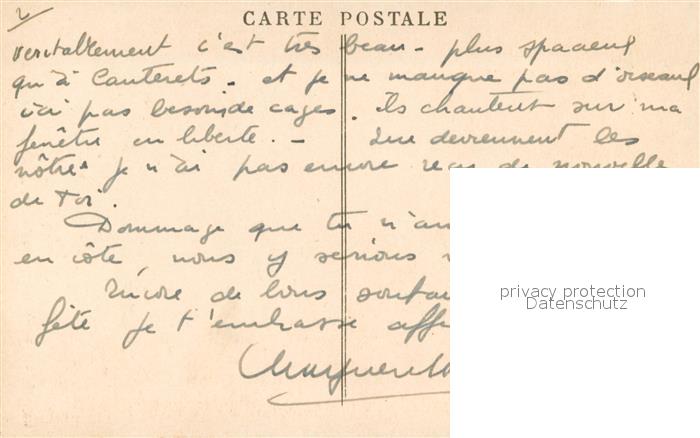 2/
CARTE POSTALE
veritablement c'est très beau - plus spacieux
qu'à Cauterets - et je ne manque pas d'oiseaux
j'ai pas besoin de cages. ils chantent sur ma
fenêtre en liberté. - Que deviennent les
nôtres je n'ai pas encore reçu de nouvelle
de toi.
Dommage que tu n'
en côte, nous y serions
Encore de bons
fête je t'embrasse
privacy protection
Datenschutz